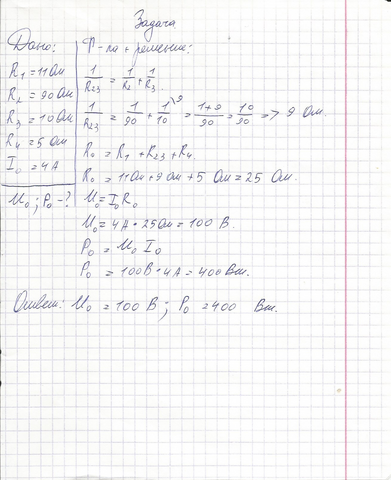 Задача
Дано:
R1 = 11 Ом
R2 = 90 Ом
R3 = 10 Ом
R4 = 5 Ом
I0 = 4 А
U0; P0 - ?
Ф-ла + решение:
1/R23 = 1/R2 + 1/R3
1/R23 = 1/90 + 1/10 \9 = 1+9/90 = 10/90 => 9 Ом.
R0 = R1 + R23 + R4
R0 = 11 Ом + 9 Ом + 5 Ом = 25 Ом.
U0 = I0 R0
U0 = 4А • 25 Ом = 100 В.
P0 = U0 I0
P0 = 100В • 4А = 400 Вт.
Ответ: U0 = 100 В; P0 = 400 Вт.